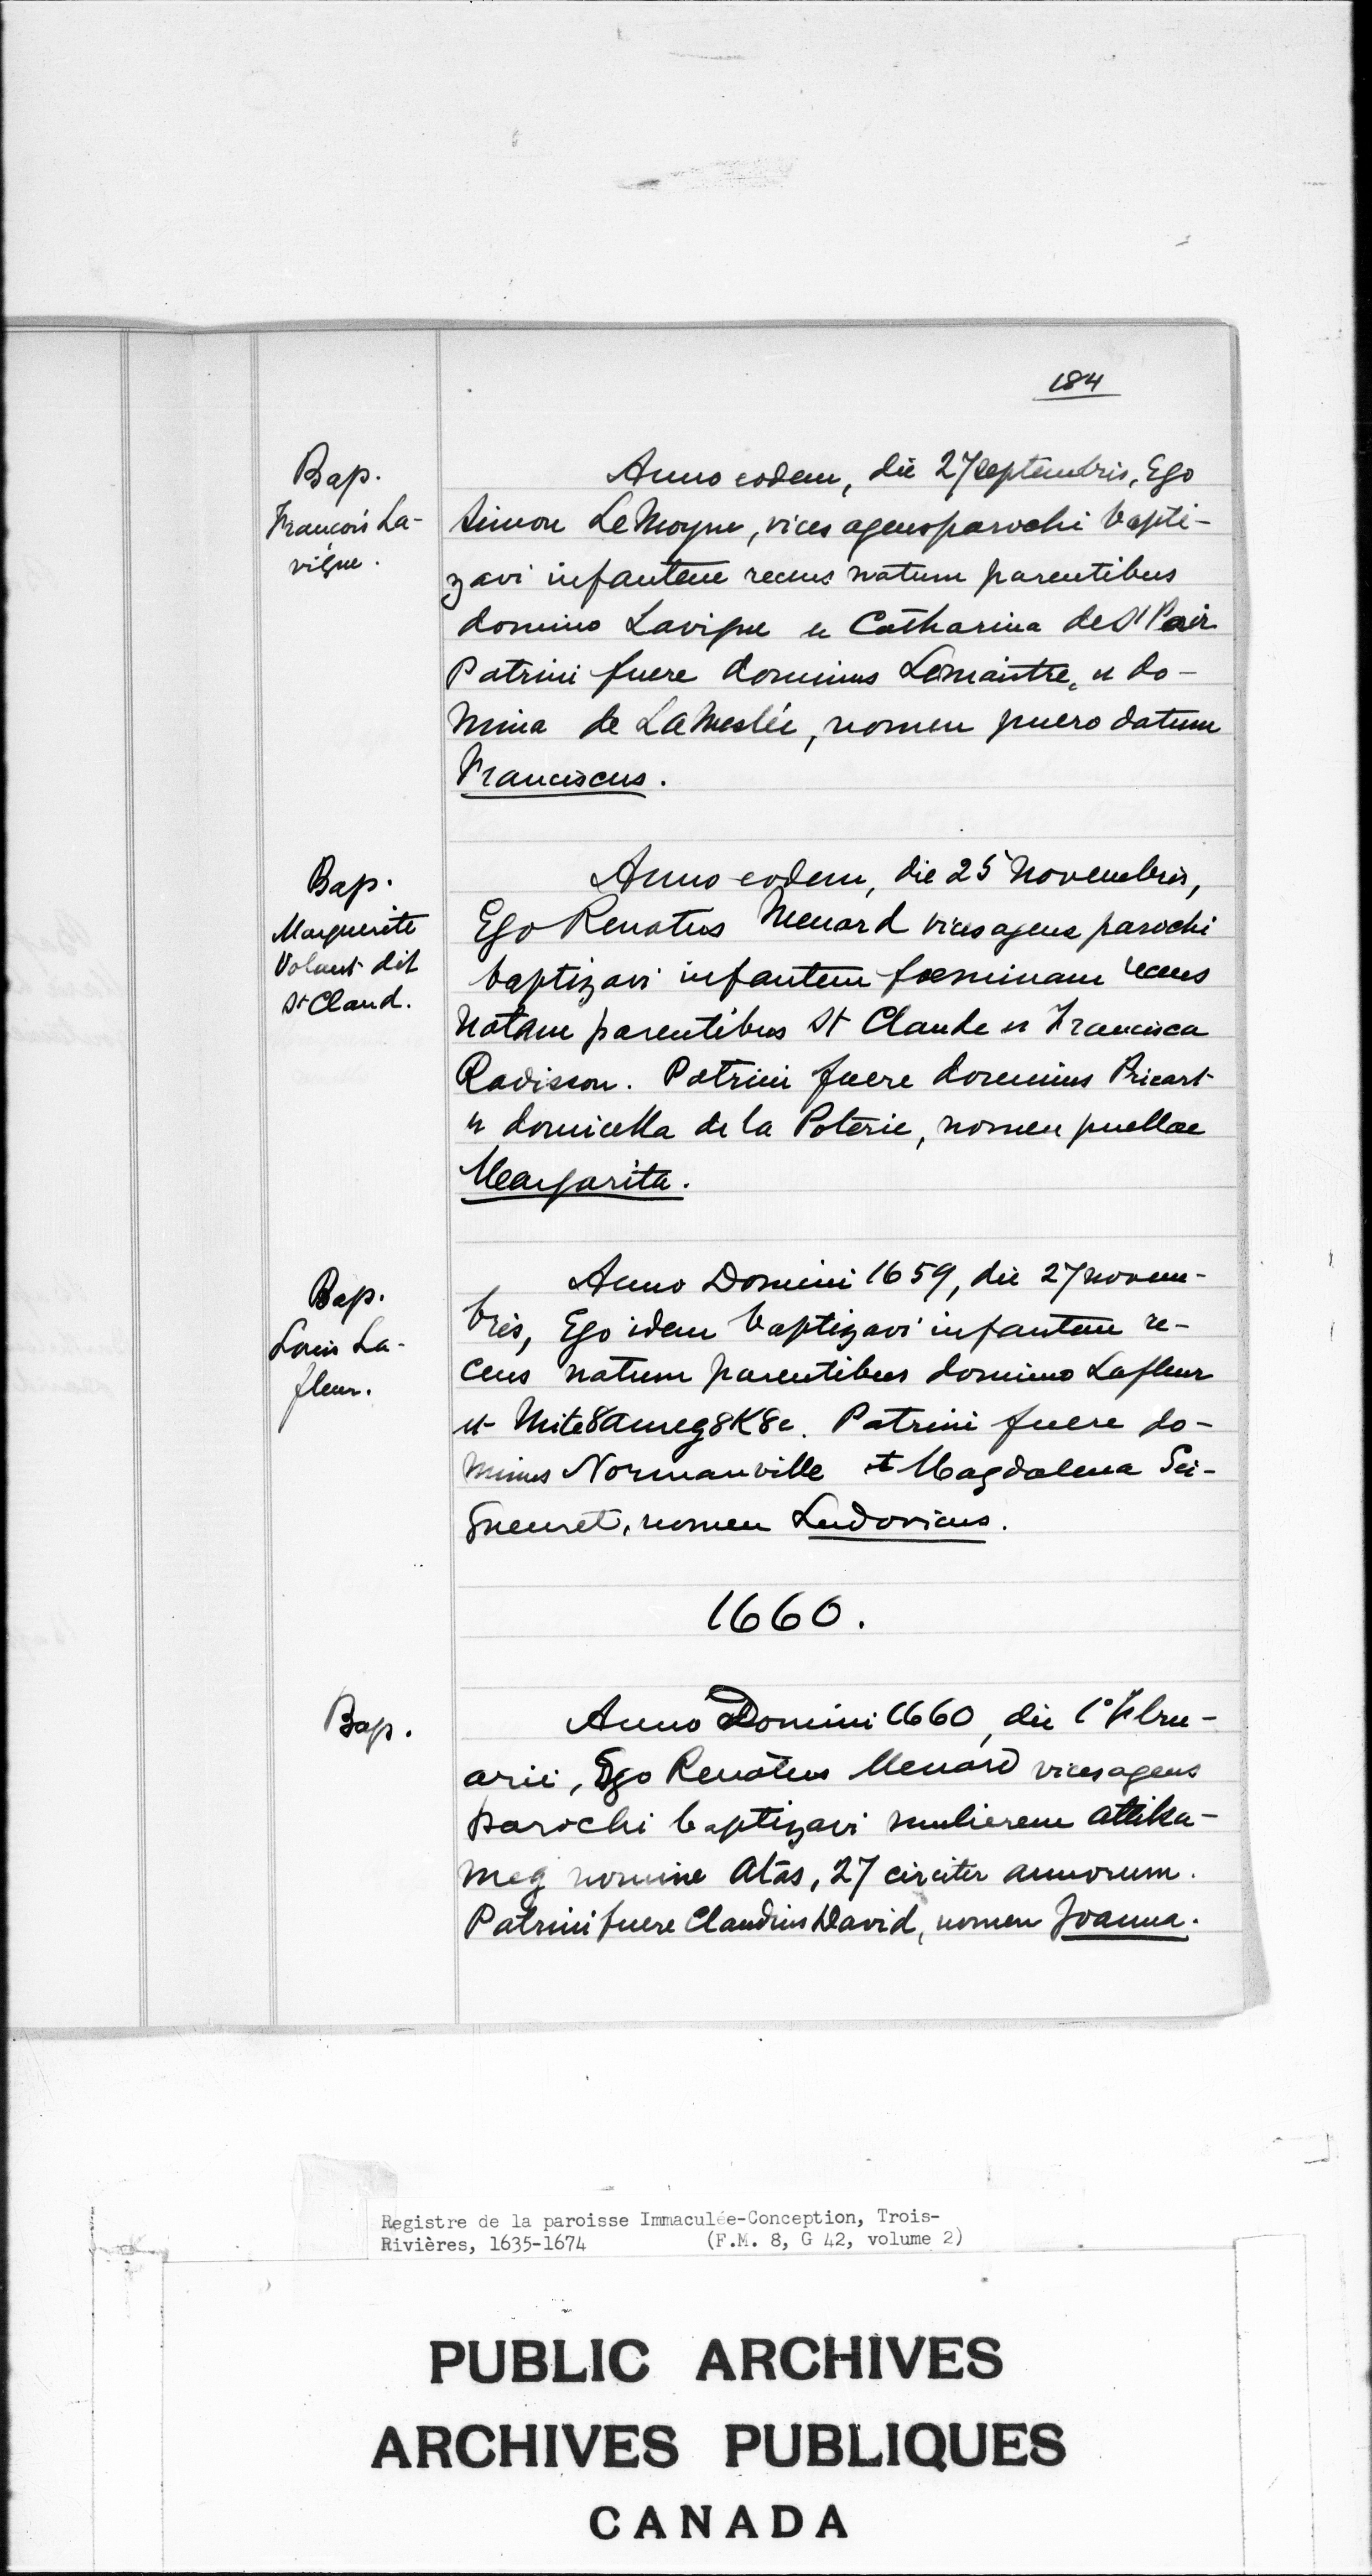 184
Bap.
François La-
vigne.
Anno eodem, die 27 septembris, Ego
Simon LeMoyne, vices agens parochi bapti-
zavi infantem recens natum parentibus
domino Lavigne et Catharina de St Pair
Patrini fuere dominus Lemaistre, et do-
mina de LaMeslée, nomen puero datum
Franciscus.
Bap.
Marguerite
Volant dit
St Claud.
Anno eodem, die 25 Novembris,
Ego Renatus Menard vices agens parochi
baptizavi infantem foeminam recens
Natam parentibus St Claude et Francisca
Radisson. Patrini fuere dominus Pricart
et domicella de la Poterie, nomen puellae
Margarita.
Bap.
Louis La-
fleur.
Anno Domini 1659, die 27 novem-
bris, Ego idem baptizavi infantem re-
cens natum parentibus domino Lafleur
et Mite8ameg8K8e. Patrini fuere do-
minus Normanville et Magdalena Sei-
gneuret, nomen Ludovicus.
1660.
Bap.
Anno Domini 1660, die 1° Febru-
arii, Ego Renatus Menard vices agens
parochi baptizavi mulierem Attika-
meg nomine Atas, 27 circiter annorum.
Patrini fuere Claudius David, nomen Joanna.
Registre de la paroisse Immaculée-Conception, Trois-
Rivières, 1635-1674 (F.M. 8, G 42, volume 2)
PUBLIC ARCHIVES
ARCHIVES PUBLIQUES
CANADA